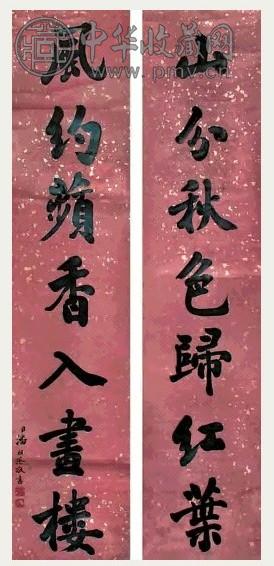 山分秋色歸红葉
風約蘋香入畫樓
中华收藏网
www.pmv.cn